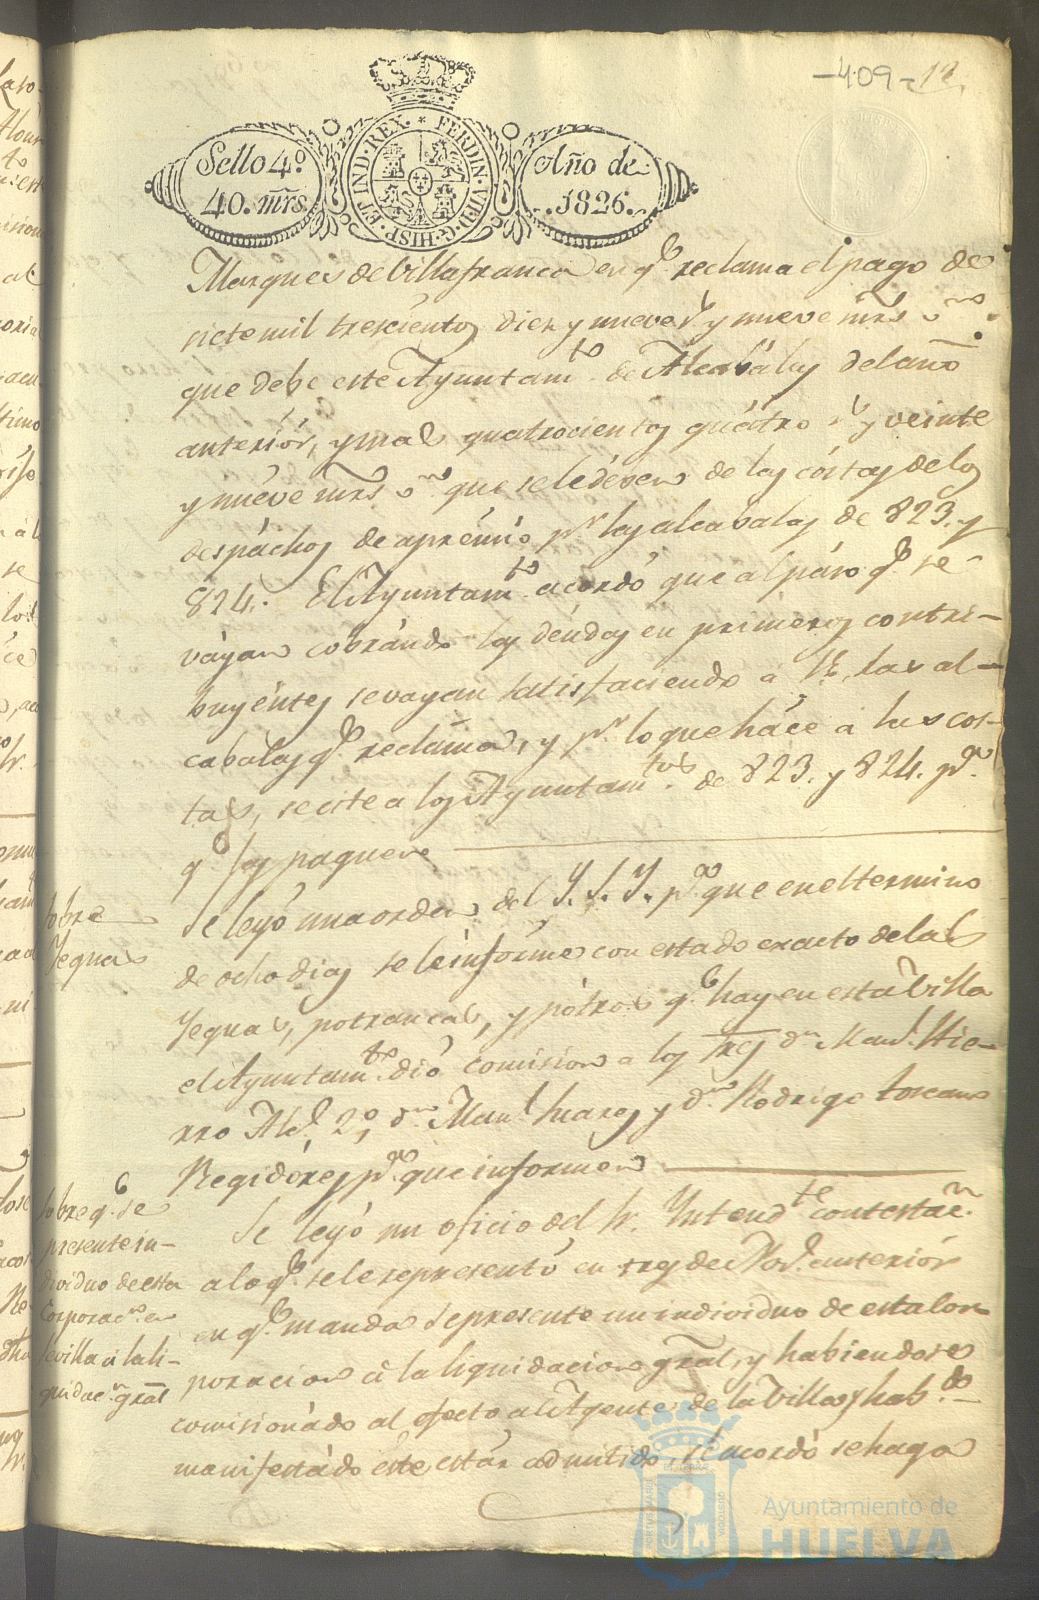 -409- 12
Sello 4º
40. mrs
HISP. ET IND. REX. * FERDIN. VII. D. G.
Año de
1826.
Marques de Villafranca en qe. reclama el pago de
siete mil trescientos diez y nueve rs. y nueve mrs. vn.
que debe este Ayuntamto. de Alcabalas del año
anteriór, y mas quatrocientos quátro rs. y veinte
y nuéve mrs vn. que se le déven de las cóstas de los
despáchos de aprémio pr. las alcabalas de 823. y
824. El Ayuntamto. acordó que al páso qe. se
váyan cobrándo las déudas en priméros contri-
buyéntes se vayan satisfaciendo á S.E. las al-
cabalas qe. recláma, y pr. lo que háce á las cos-
tas, se cite á los Ayuntamtos. de 823. y 824. pa.
qe. las paguen
Sobre
Yeguas
Se leyó una orden del Y. S. Y. pa. que en el termino
de ocho dias se le infórme con estado exacto de las
Yeguas, potrancas, y pótros qe. hay en esta Villa
el Ayuntamto. dió comision a los Sres. dn. Manl. Hie-
rro Alce. 2º, dn. Manl. Suares y dn. Rodrigo toscano
Regidóres pa. que informen
Sobre qe. se
presente in-
dividuo de esta
Corporacn. en
Sevilla á la li-
quidacn. gral
Se leyó un oficio del Sr. Yntendte. contestacn.
a lo qe. se le represento en tres de Nove. anteriór
en qe. manda se presente un individuo de esta Cor-
poracion á la liquidacion gral, y habiendose
comisionádo al efecto al Agente de la Villa y habdo.
manifestádo éste estár admitido, se acordó se haga
Ayuntamiento de
HUELVA